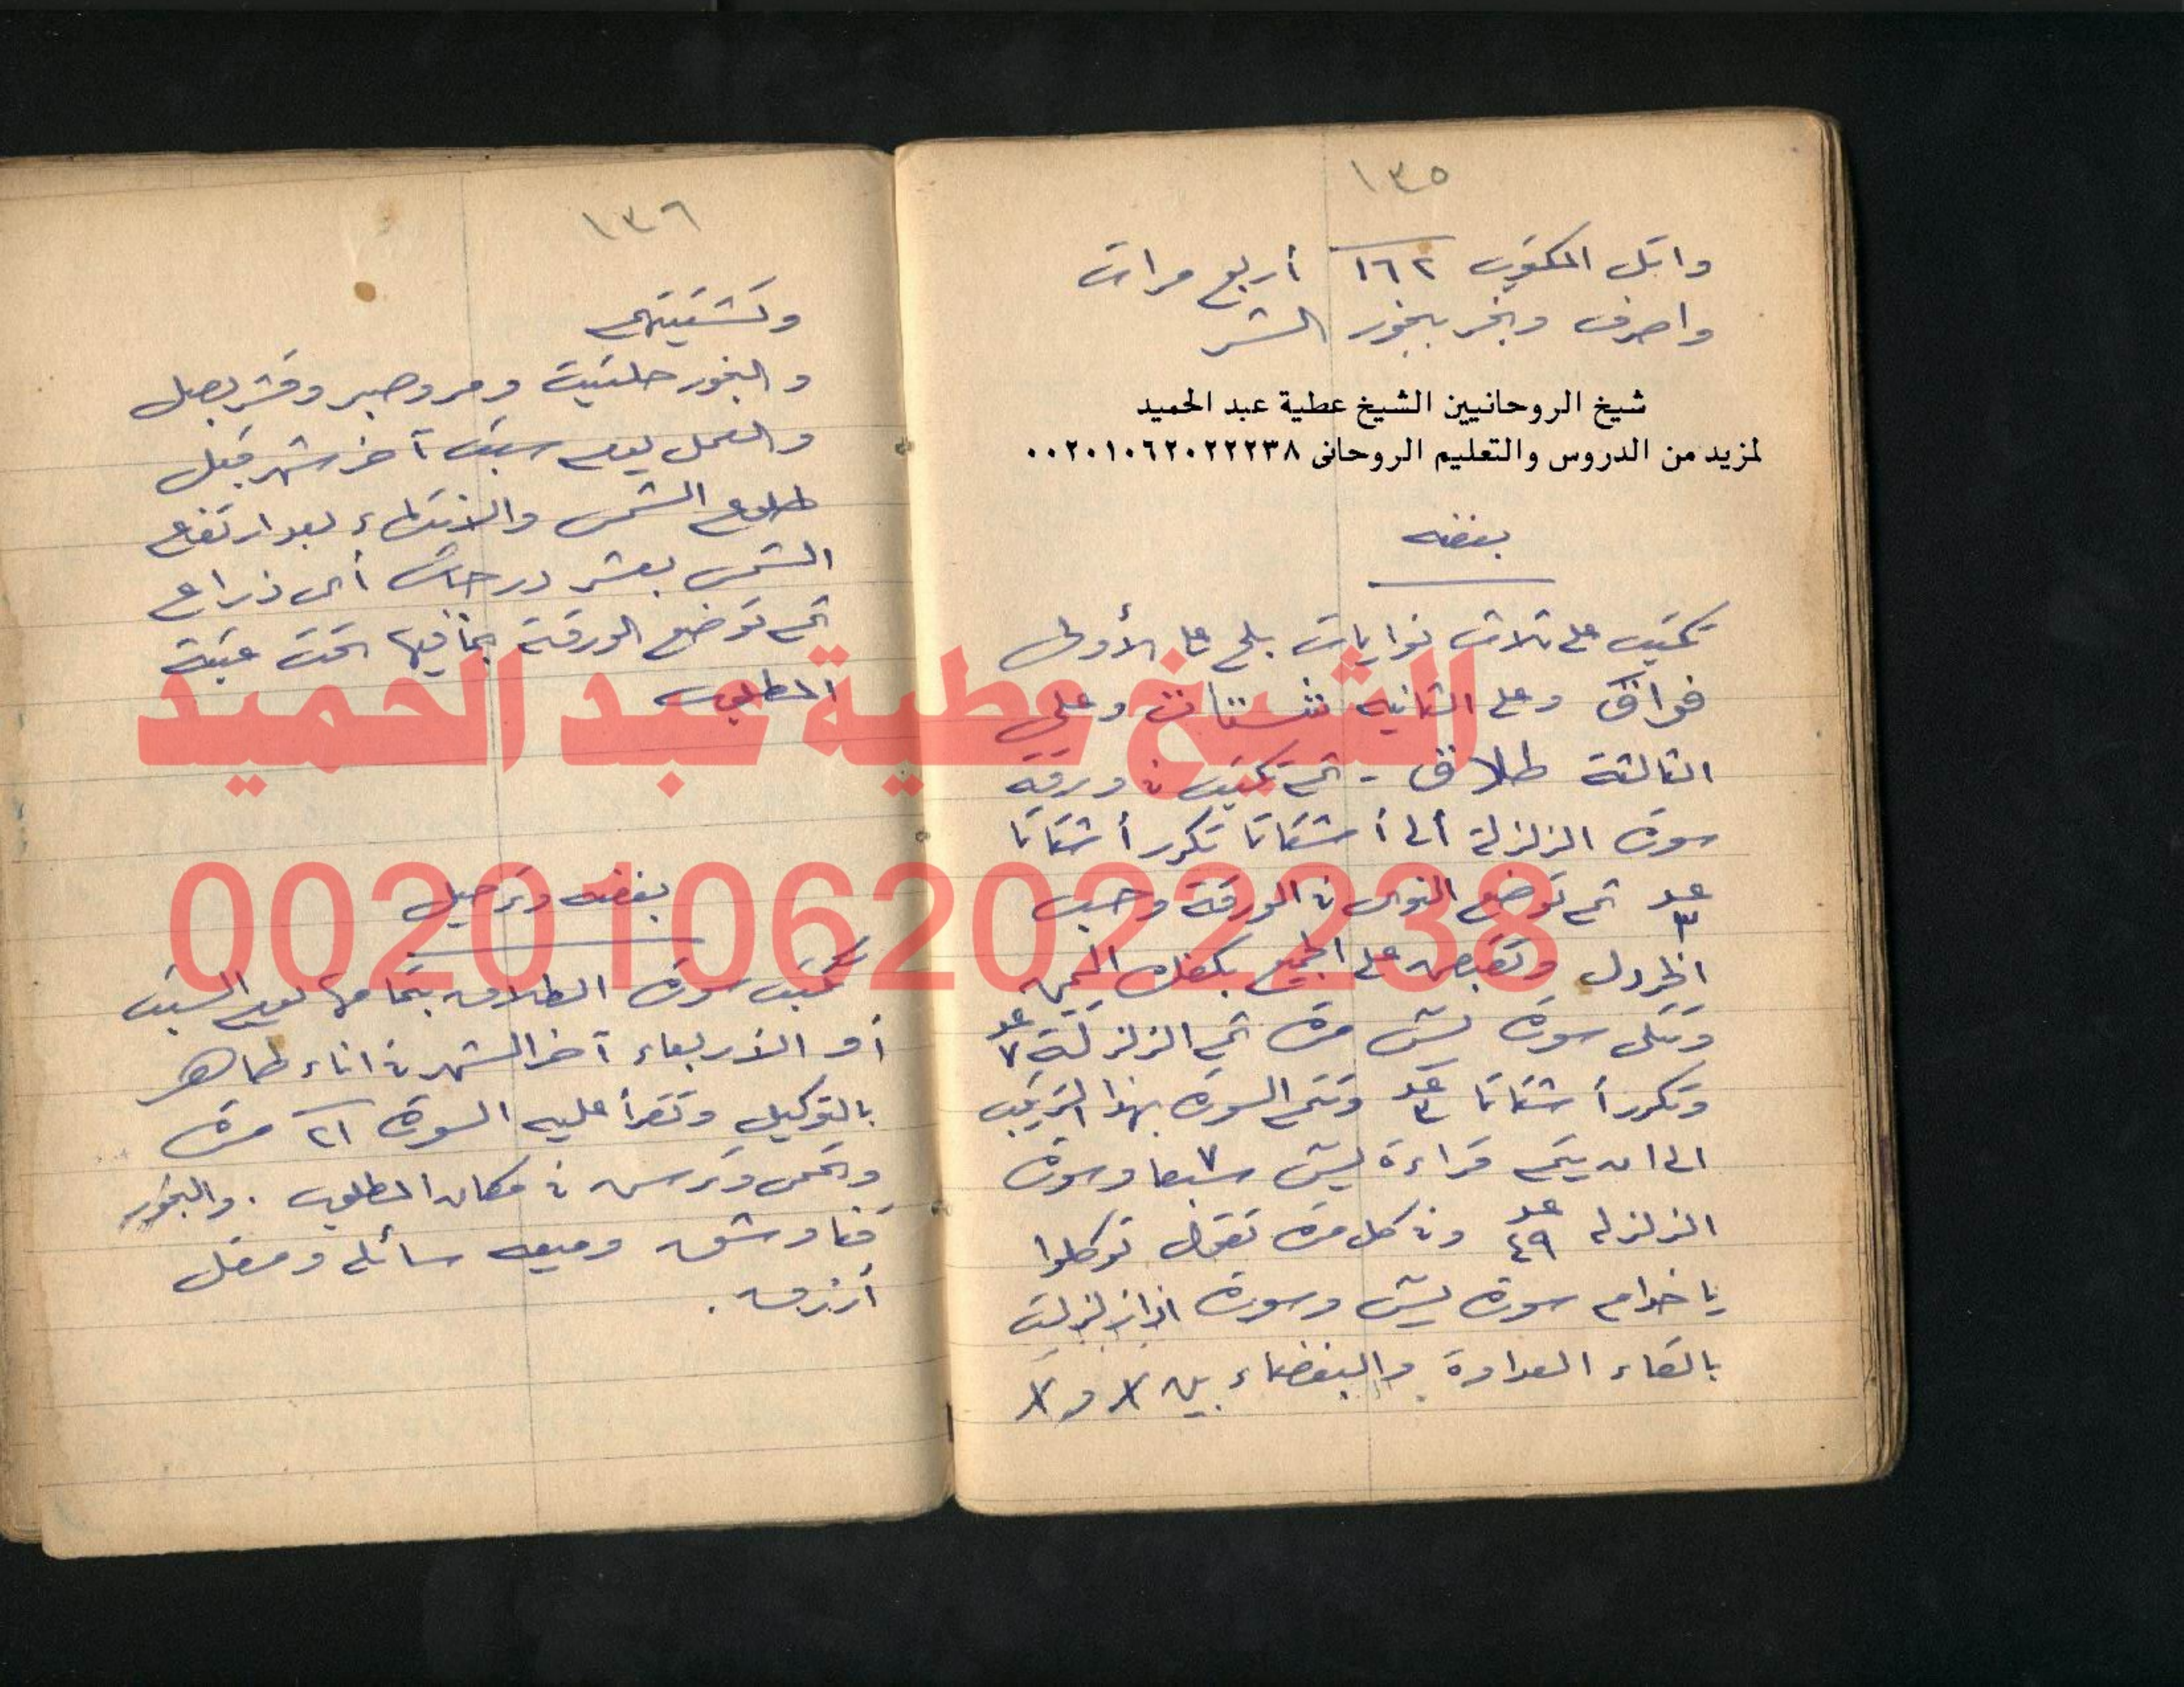 ١٣٥
واتل المكتوب ١٦٢ أربع مرات
واصرف وبخر ببخور الشر
شيخ الروحانيين الشيخ عطية عبد الحميد
لمزيد من الدروس والتعليم الروحانى ٠٠٢٠١٠٦٢٠٢٢٢٣٨
بغضه
تكتب على ثلاث نوايات بلح على الأولى
فراق وعلى الثانيه شتات وعلى
الثالثة طلاق - ثم تكتب فى ورقة
سورة الزلزلة الى أشتاتا تكرر أشتاتا
عدد ٣ ثم توضع النوى فى الورقة وحب
الخردل وتقبض على الجميع بكفك اليمين
وتتلى سورة يس مرة ثم الزلزلة عدد ٧
وتكرر أشتاتا عدد ٣ وتتم السورة بهذا الترتيب
الى ان يتم قراءة يس ٧ سبعا وسورة
الزلزلة عدد ٤٩ وفى كل مرة تقول توكلوا
يا خدام سورة يس وسورة اذا زلزلت
بالقاء العداوة والبغضاء بين X و X
١٣٦
وتشتيتهم
والبخور حلتيت ومر وصبر وقشر بصل
والعمل يوم سبت آخر شهر قبل
طلوع الشمس والانتهاء بعد ارتفاع
الشمس بعشر درجات أى ذراع
ثم توضع الورقة بما فيها تحت عتبة
المطلوب
بغضه وترحيل
تكتب سورة الطلاق بتمامها يوم السبت
أو الأربعاء آخر الشهر فى اناء طاهر
بالتوكيل وتقرأ عليه السورة ٢١ مرة
وتمحى وترش فى مكان المطلوب . والبخور
قناوشق وميعه سائله ومقل
أزرق .
الشيخ عطية عبد الحميد
00201062022238